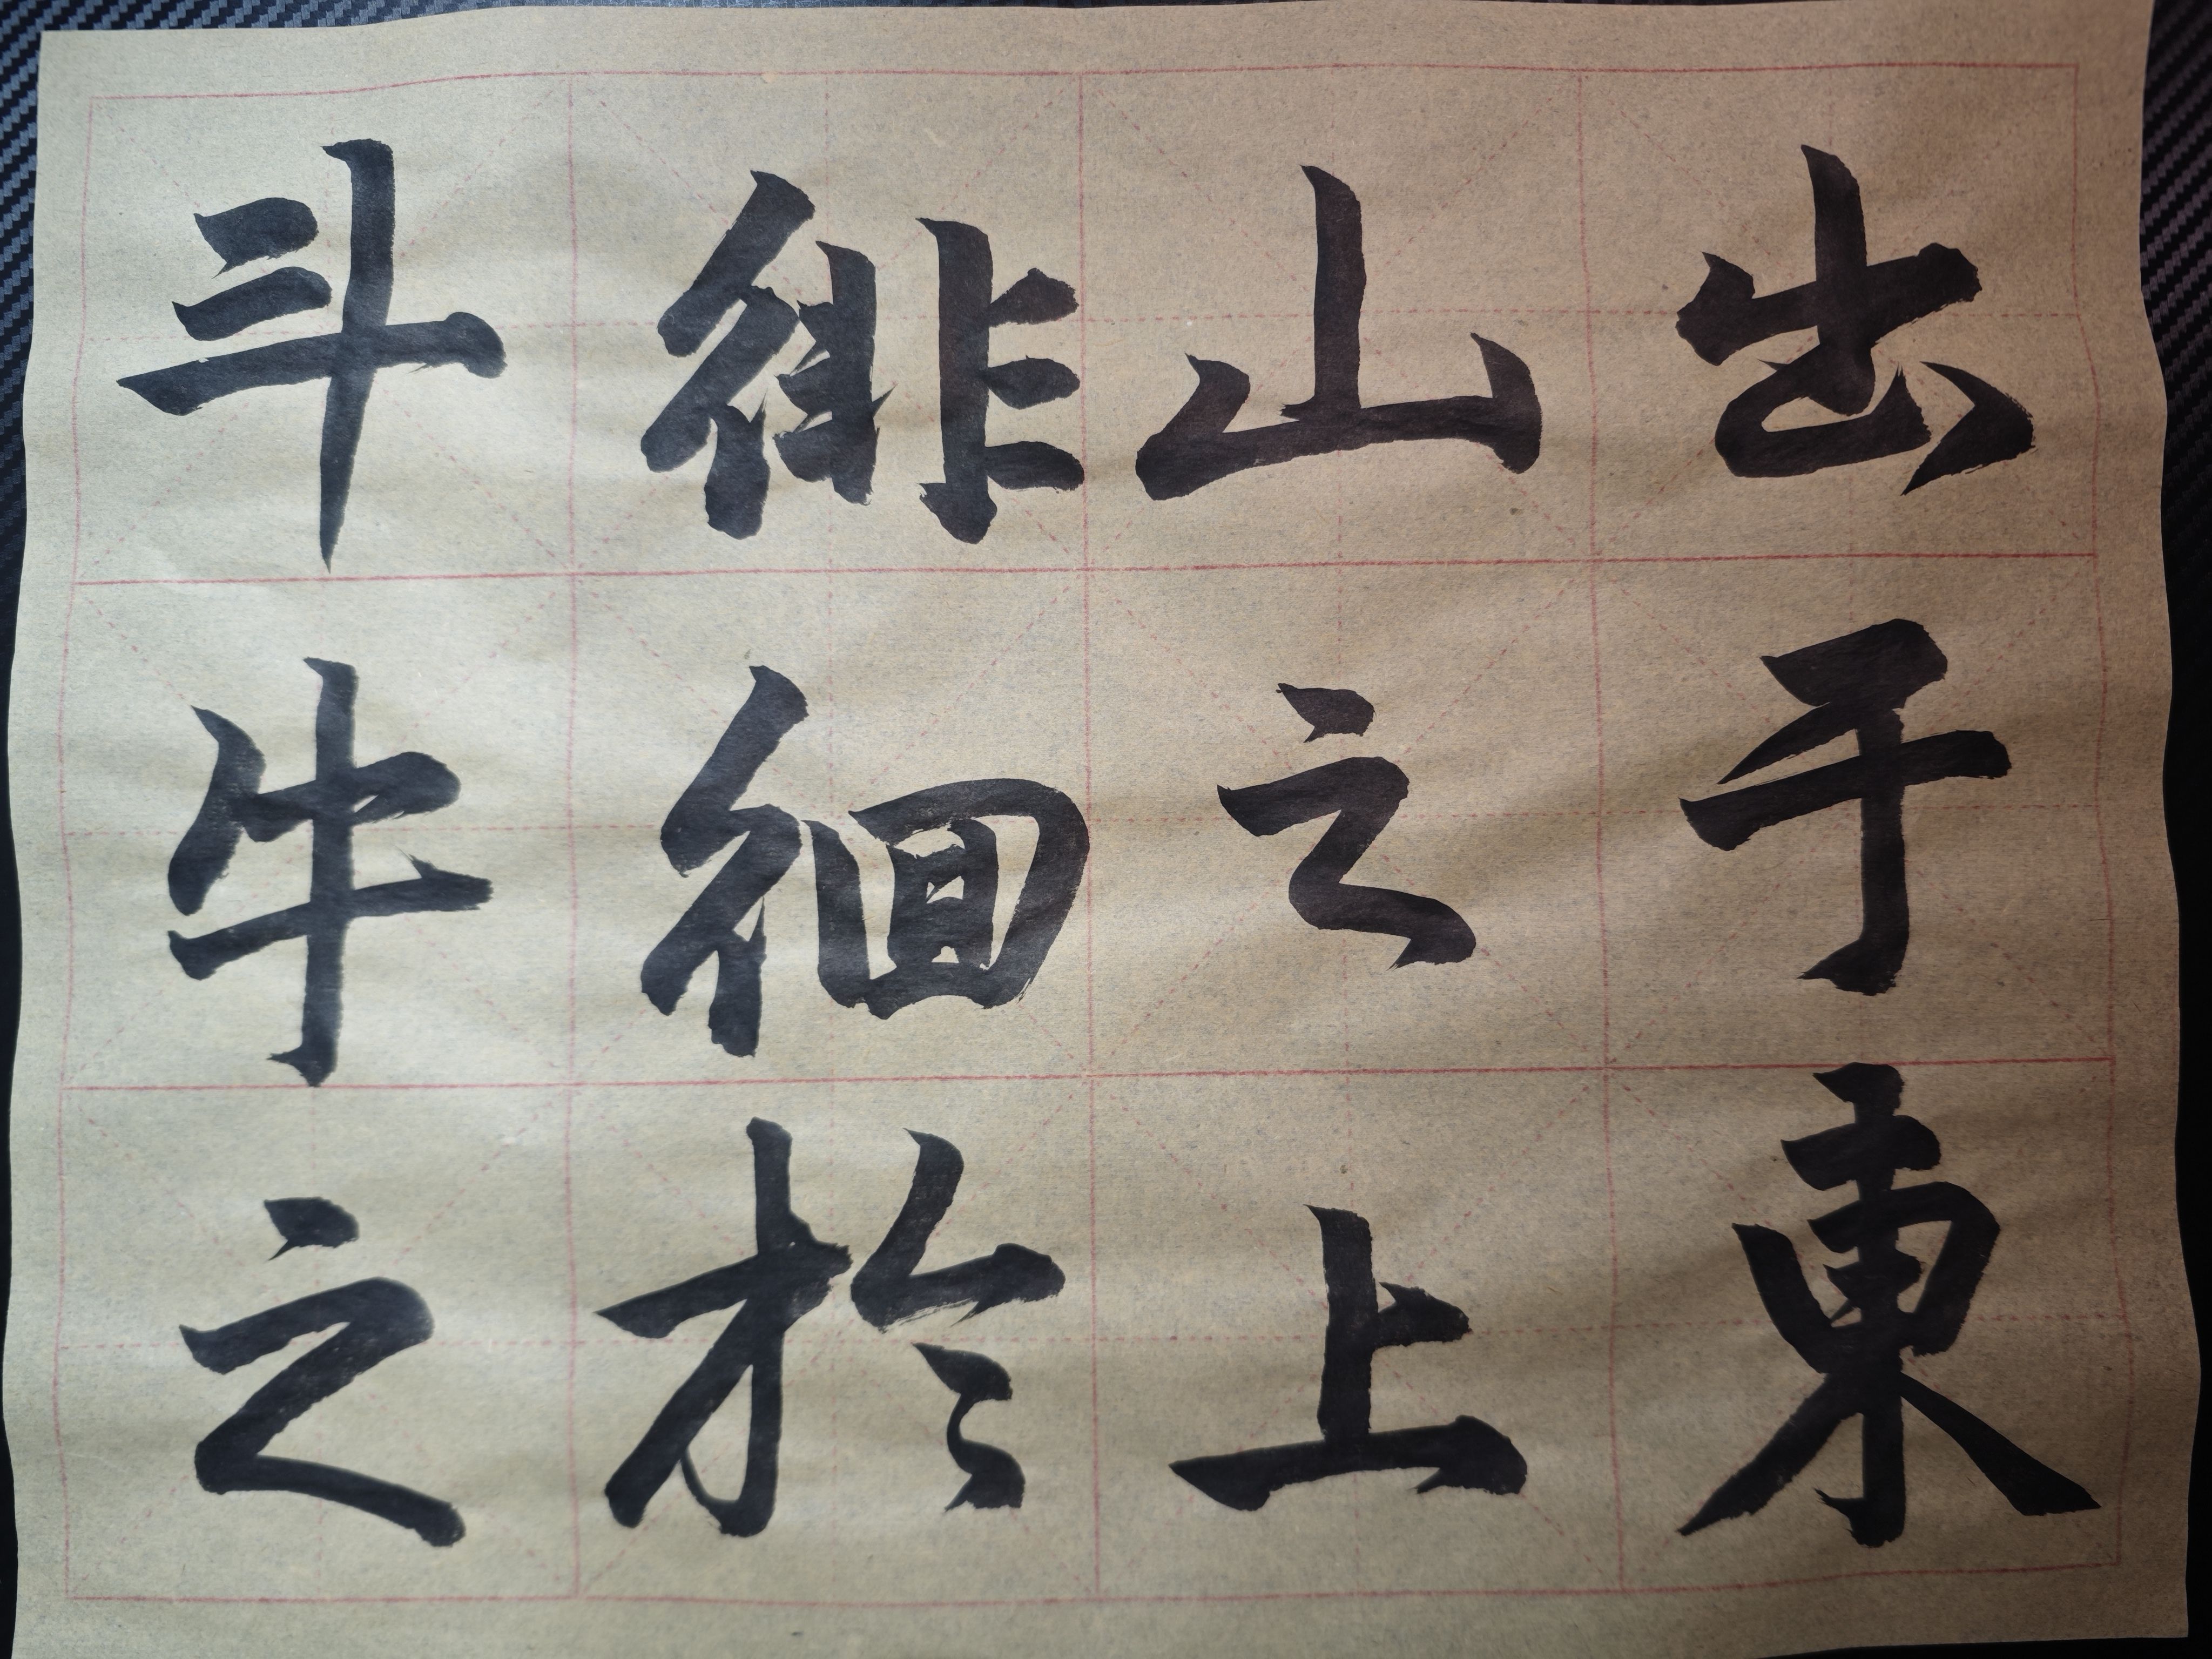 出于東
山之上
徘徊於
斗牛之